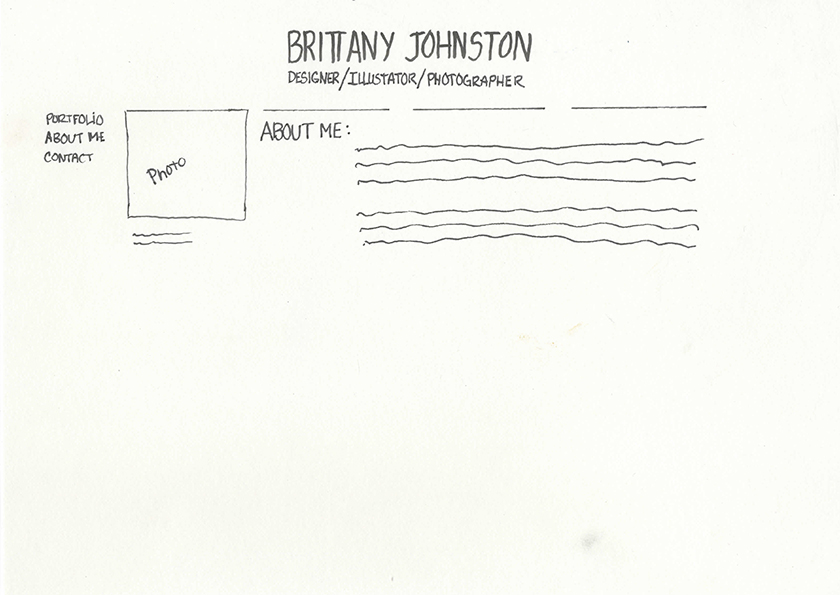 BRITTANY JOHNSTON
DESIGNER/ILLUSTATOR/PHOTOGRAPHER
PORTFOLIO
ABOUT ME
CONTACT
Photo
ABOUT ME: